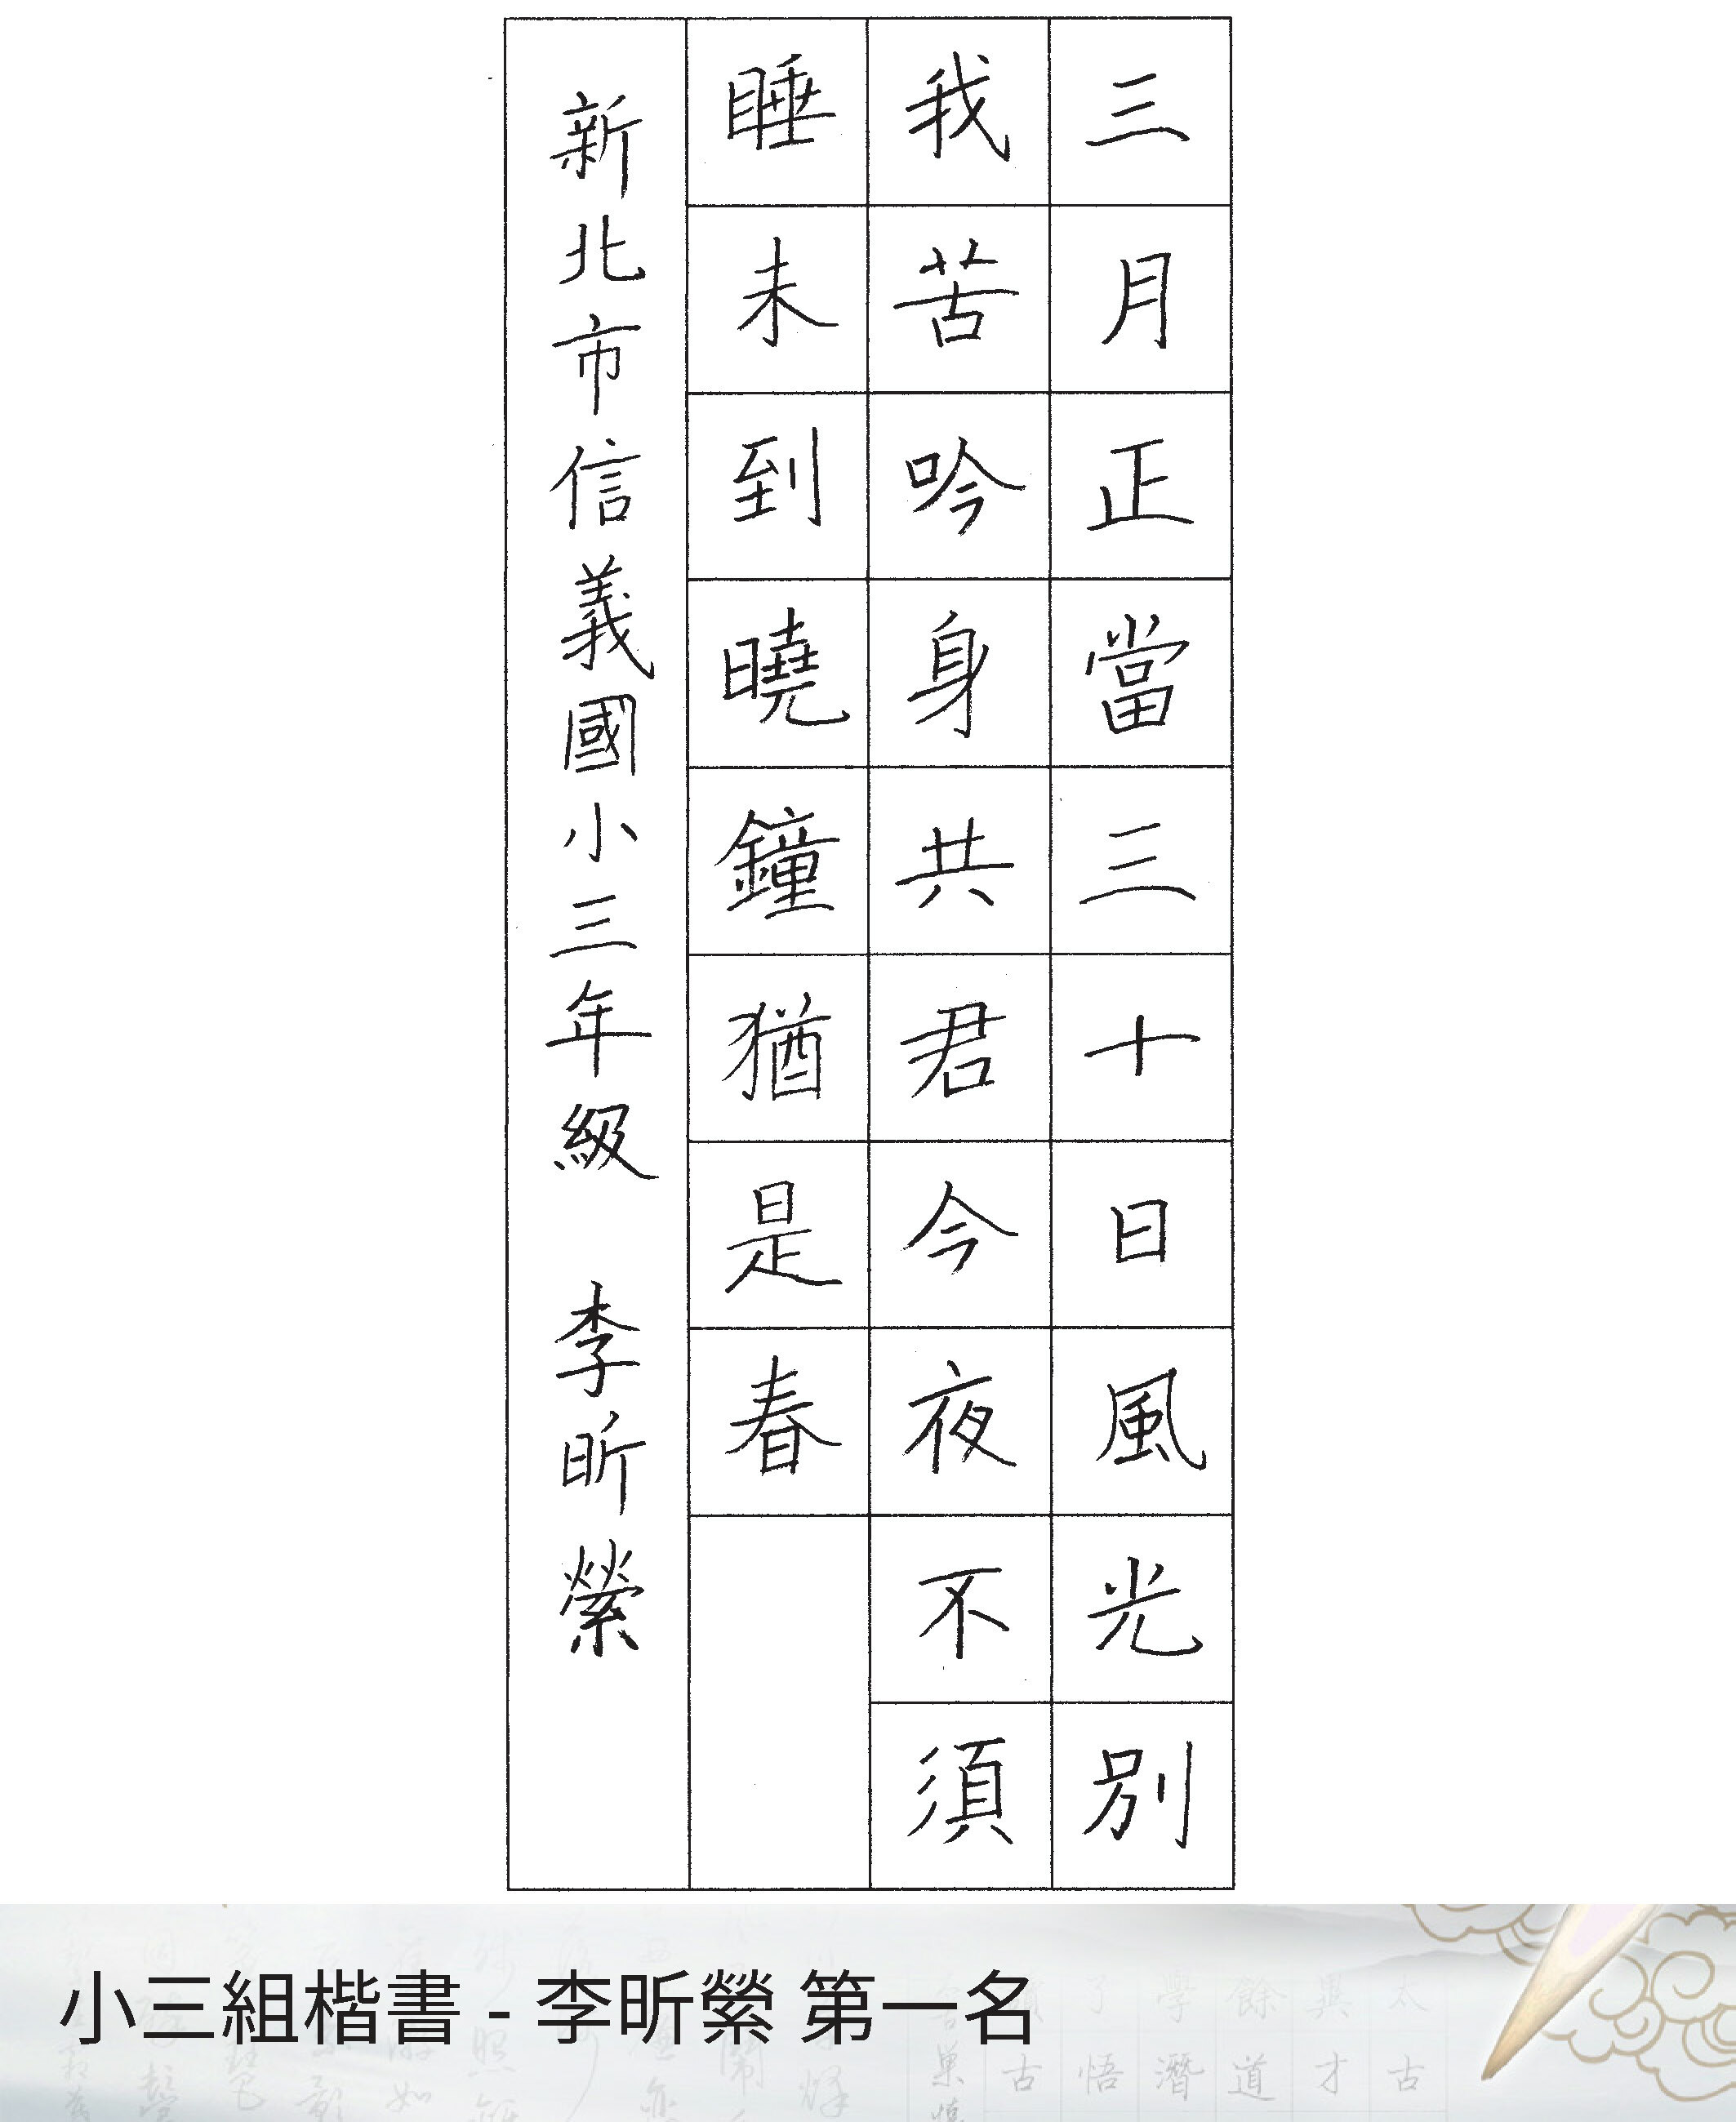 三月正當三十日風光別
我苦吟身共君今夜不須
睡未到曉鐘猶是春
新北市信義國小三年級 李昕縈
小三組楷書 - 李昕縈 第一名